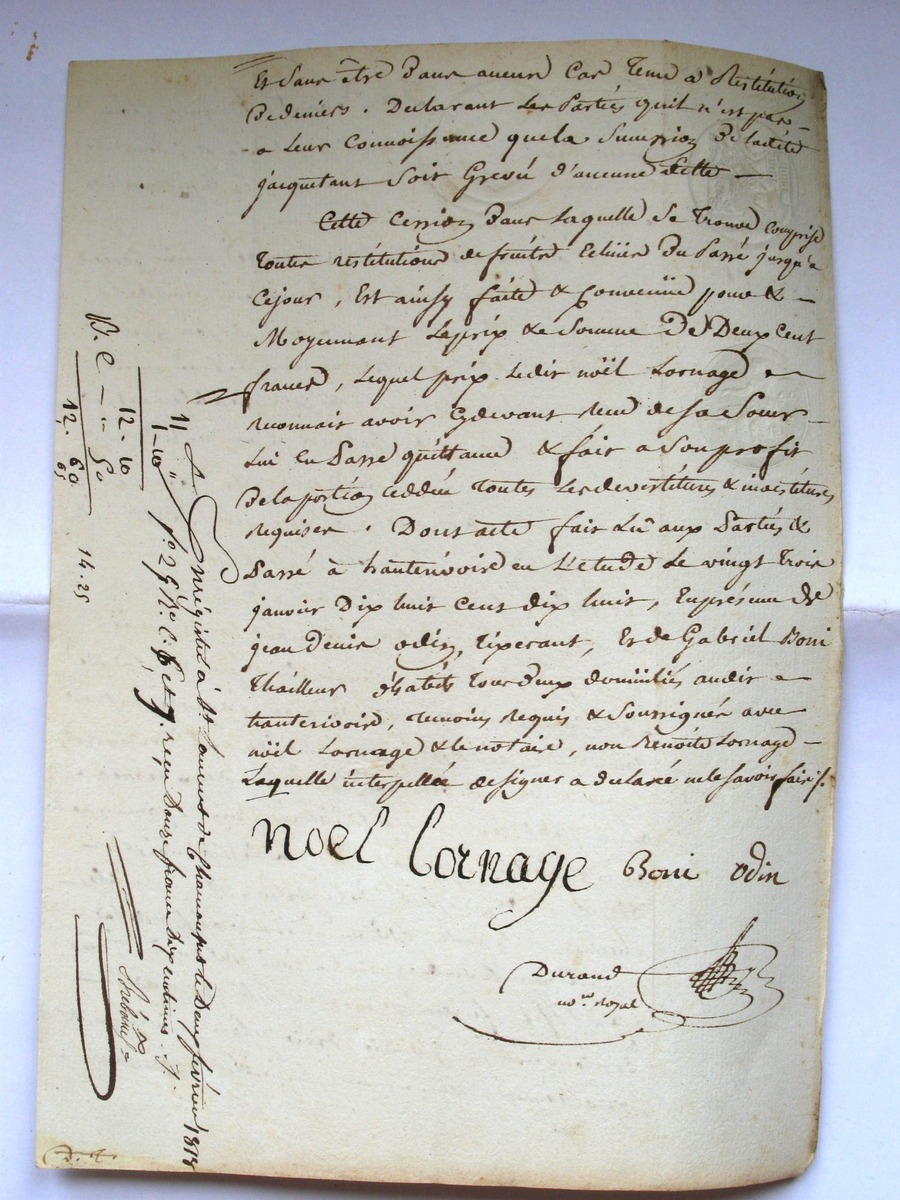 Et sans être dans aucun cas tenu a Restitution
de deniers. Declarant les Parties quil n'est pas
a leur Connoissance que la Succession de ladite
jacquetant soit Grevée d'aucune dette —
Cette Cession dans laquelle se trouve comprise
toutes restitutions de fruits Echus du Passé jusqu'a
Cejour, Est ainsy faite & Convenüe pour & —
Moyennant le prix & somme de Deux Cent
francs, lequel prix ledit noël Cornage —
reconnait avoir cydevant reçu de sa Soeur
lui en Passe quittance & fait a son profit
de la portion cédée toutes les devestitures & investitures
requises. Dont acte fait Lû aux Parties &
Passé à hauterivoire en L'etude le vingt trois
janvier Dix huit cent dix huit, En présence de
jean Denis odin, tixerant, Et de Gabriel Boni
thailleur d'habits tous deux domiciliés audit —
hauterivoire, temoins requis & soussignés avec
noël Cornage & le notaire, non Benoite Cornage —
Laquelle interpellée de signer a declaré ne le savoir faire /.
Noel Cornage Boni odin
Durand
no.re Royal
Enrégistré à St. Laurent de Chamousset le Deux février 1818
f.o 29 R.o C. 6 et 7. reçu Douze francs dix centimes
11 "
1 - 10
12 . 10
D. C — " 50
12. 60
14.25